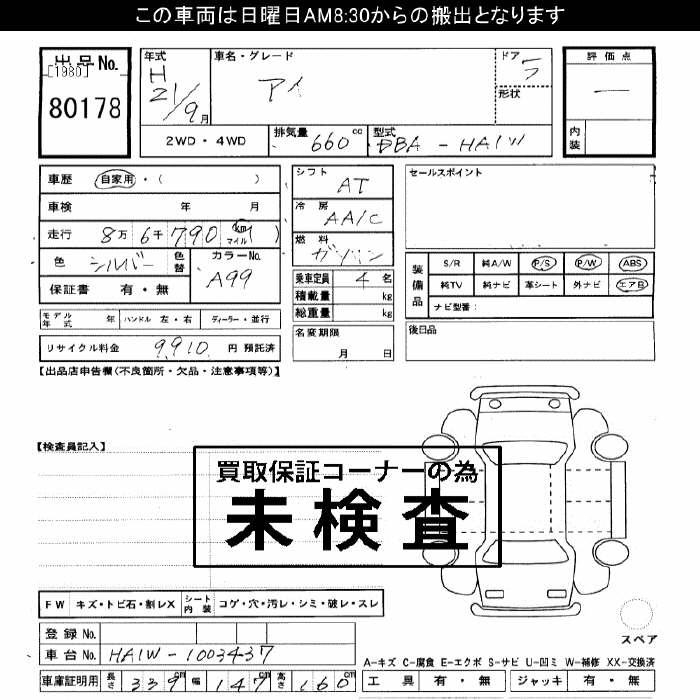 この車両は日曜日AM8:30からの搬出となります
出品No.
[1980]
80178
年式
H
21/9月
車名・グレード
アイ
ドア
5
形状
評価点
―
内装
2WD・4WD
排気量 660 cc
型式 DBA-HA1W
車歴 自家用・( )
車検 年 月
走行 8万6千790 km マイル
色 シルバー 色替
カラーNo. A99
保証書 有・無
シフト AT
冷房 AAC
燃料 ガソリン
乗車定員 4 名
積載量 kg
総重量 kg
名変期限
月 日
セールスポイント
装備品
S/R 純A/W P/S P/W ABS
純TV 純ナビ 革シート 外ナビ エアB
ナビ型番:
後日品
モデル年式 年 ハンドル 左・右 ディーラー・並行
リサイクル料金 9,910 円 預託済
【出品店申告欄(不良箇所・欠品・注意事項等)】
【検査員記入】
買取保証コーナーの為
未検査
FW キズ・トビ石・割レX シート内装 コゲ・穴・汚レ・シミ・破レ・スレ
登録No.
車台No. HA1W-1003437
車庫証明用 長さ 339 cm 幅 147 cm 高さ 160 cm
スペア
A-キズ C-腐食 E-エクボ S-サビ U-凹ミ W-補修 XX-交換済
工具 有・無 ジャッキ 有・無